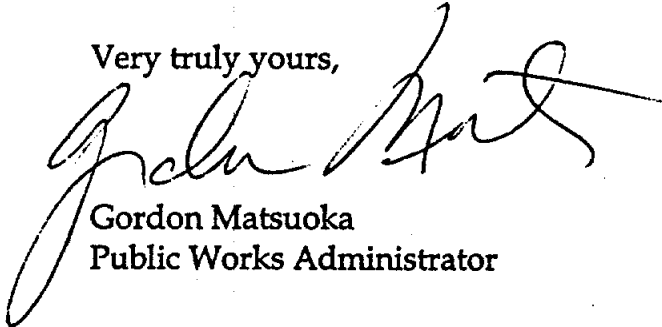 Very truly yours,
Gordon Matsuoka
Public Works Administrator